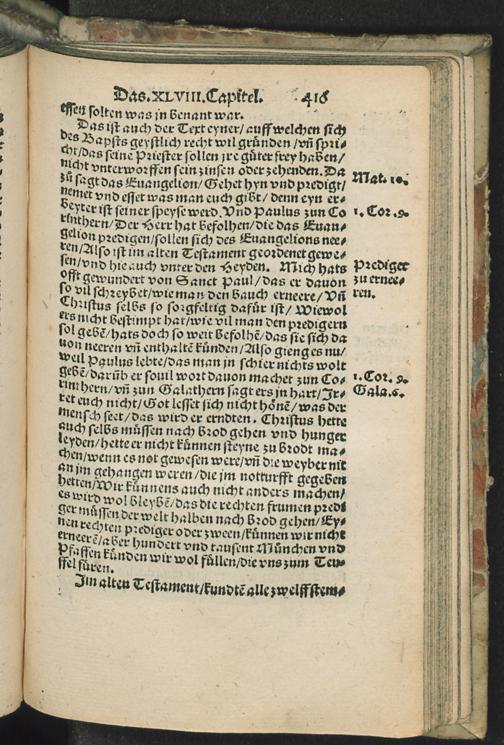 Das.XLVIII.Capitel. 416
essen solten was in benant war.
Das ist auch der Text eyner/ auff welchen sich
des Bapsts geystlich recht wil gründen/ vn̄ spri-
cht/das seine Priester sollen jre güter frey haben/
nicht vnterworffen sein zinsen oder zehenden. Da
zů sagt das Euangelion/Gehet hyn vnd predigt/
nemet vnd esset was man euch gibt/ denn eyn er-
beyter ist seiner speyse werd. Vnd Paulus zun Co
rinthern/ Der Herr hat befolhen/die das Euan-
gelion predigen/sollen sich des Euangelions nee-
ren/Also ist im alten Testament geordenet gewe-
sen/vnd hie auch vnter den Heyden. Mich hats
offt gewundert von Sanct Paul/das er dauon
so vil schreybet/wie man den bauch erneere/ Vn̄
Christus selbs so sorgfeltig dafür ist/ Wiewol
ers nicht bestimpt hat/wie vil man den predigern
sol gebē/hats doch so weit befolhē/das sie sich da
uon neeren vn̄ enthaltē künden/Also gieng es nu/
weil Paulus lebte/das man in schier nichts wolt
gebē/darüb er souil wort dauon machet zun Co-
rinthern/ vn̄ zun Galathern sagt ers jn hart/Jr-
ret euch nicht/Got lesset sich nicht hönē/was der
mensch seet/das wird er erndten. Christus hette
auch selbs müssen nach brod gehen vnd hunger
leyden/hette er nicht künnen steyne zu brodt ma-
chen/wenn es not gewesen were/vn̄ die weyber nit
an jm gehangen weren/die jm notturfft gegeben
hetten/Wir künnens auch nicht anders machen/
es wird wol bleybē/das die rechten frumen predi
ger müssen der welt halben nach brod gehen/Ey-
nen rechten prediger oder zween/künnen wir nicht
erneerē/aber hundert vnd tausent München vnd
Pfaffen künden wir wol füllen/die vns zum Teu-
ffel füren.
Jm alten Testament/kundtē alle zwelff stem-
Mat. 10.
1. Cor. 9.
Prediger
zu ernee-
ren.
1. Cor. 9.
Gala. 6.